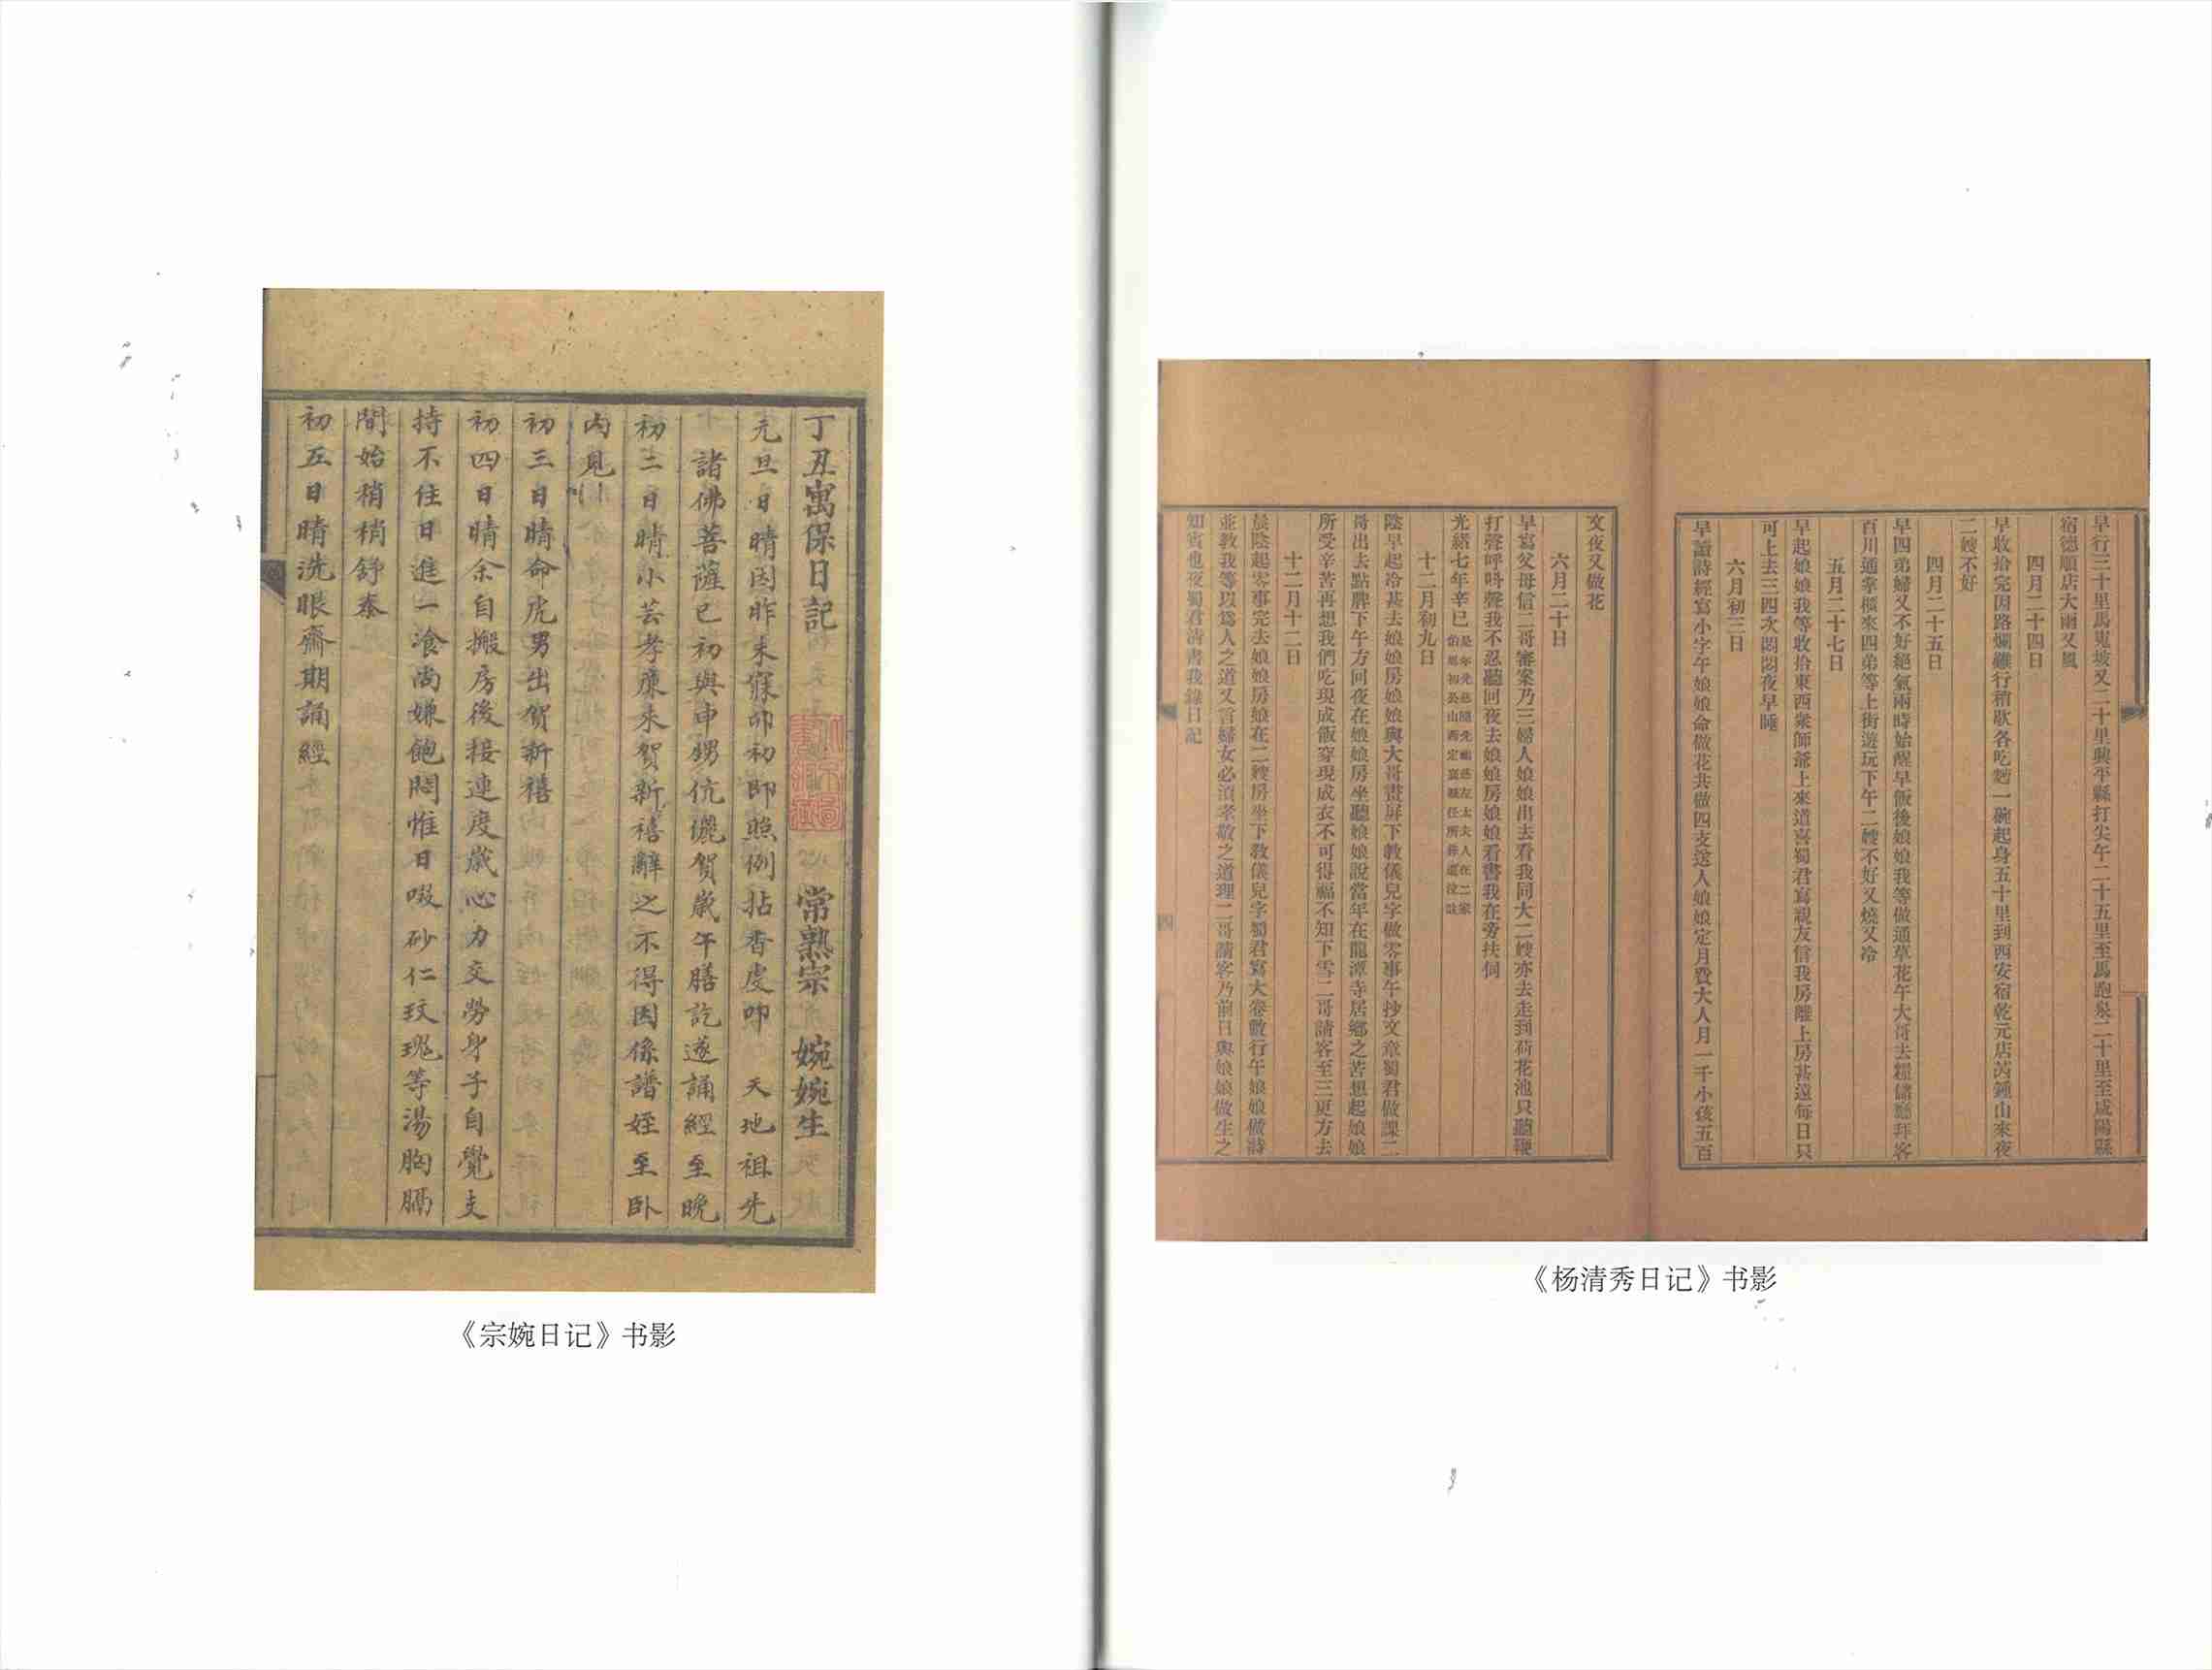 丁丑寓保日記 常熟宗 婉婉生
元旦日晴因昨未寐卯初即照例拈香虔叩 天地祖先
諸佛菩薩已初與申甥伉儷賀歲午膳訖遂誦經至晚
初二日晴小芸孝廉来賀新禧辭之不得因係譜姪至卧
内見
初三日晴命虎男出贺新禧
初四日晴余自搬房後接連度歲心力交勞身子自覺支
持不住日進一飡尚嫌飽悶惟日啜砂仁玫瑰等湯胸膈
間始稍稍舒泰
初五日晴洗眼齋期誦經
《宗婉日记》书影
早行三十里馬嵬坡又二十里興平縣打尖午二十五里至馬跑泉二十里至咸陽縣
宿德順店大雨又風
四月二十四日
早收拾完因路爛難行稍歇各吃麪一碗起身五十里到西安宿乾元店芮鍾山來夜
二嫂不好
四月二十五日
早四弟婦又不好絕氣兩時始醒早飯後娘娘我等做通草花午大哥去糧儲廳拜客
百川通掌櫃來四弟等上街遊玩下午二嫂不好又燒又冷
五月二十七日
早起娘娘我等收拾東西衆師爺上來道喜蜀君寫親友信我房離上房甚遠每日只
可上去三四次悶悶夜早睡
六月初三日
早讀詩經寫小字午娘娘命做花共做四支送人娘娘定月費大人月一千小孩五百
文夜又做花
六月二十日
早寫父母信二哥審案乃三婦人娘娘出去看我同大二嫂亦去走到荷花池只聽鞭
打聲呼呌聲我不忍聽回夜去娘娘房娘娘看書我在旁扶伺
光緒七年辛巳
十二月初九日
陰早起冷甚去娘娘房娘娘與大哥書屏下教儀兒字做零事午抄文章蜀君做課二
哥出去點牌下午方回夜在娘娘房坐聽娘娘說當年在龍潭寺居鄉之苦想起娘娘
所受辛苦再想我們吃現成飯穿現成衣不可得福不知下雪二哥請客至三更方去
十二月十二日
晨陰起零事完去娘娘房娘在二嫂房坐下教儀兒字蜀君寫大卷數行午娘娘做詩
並教我等以爲人之道又言婦女必須孝敬之道理二哥請客乃前日與娘娘做生之
知賓也夜蜀君清書我錄日記
四
《杨清秀日记》书影